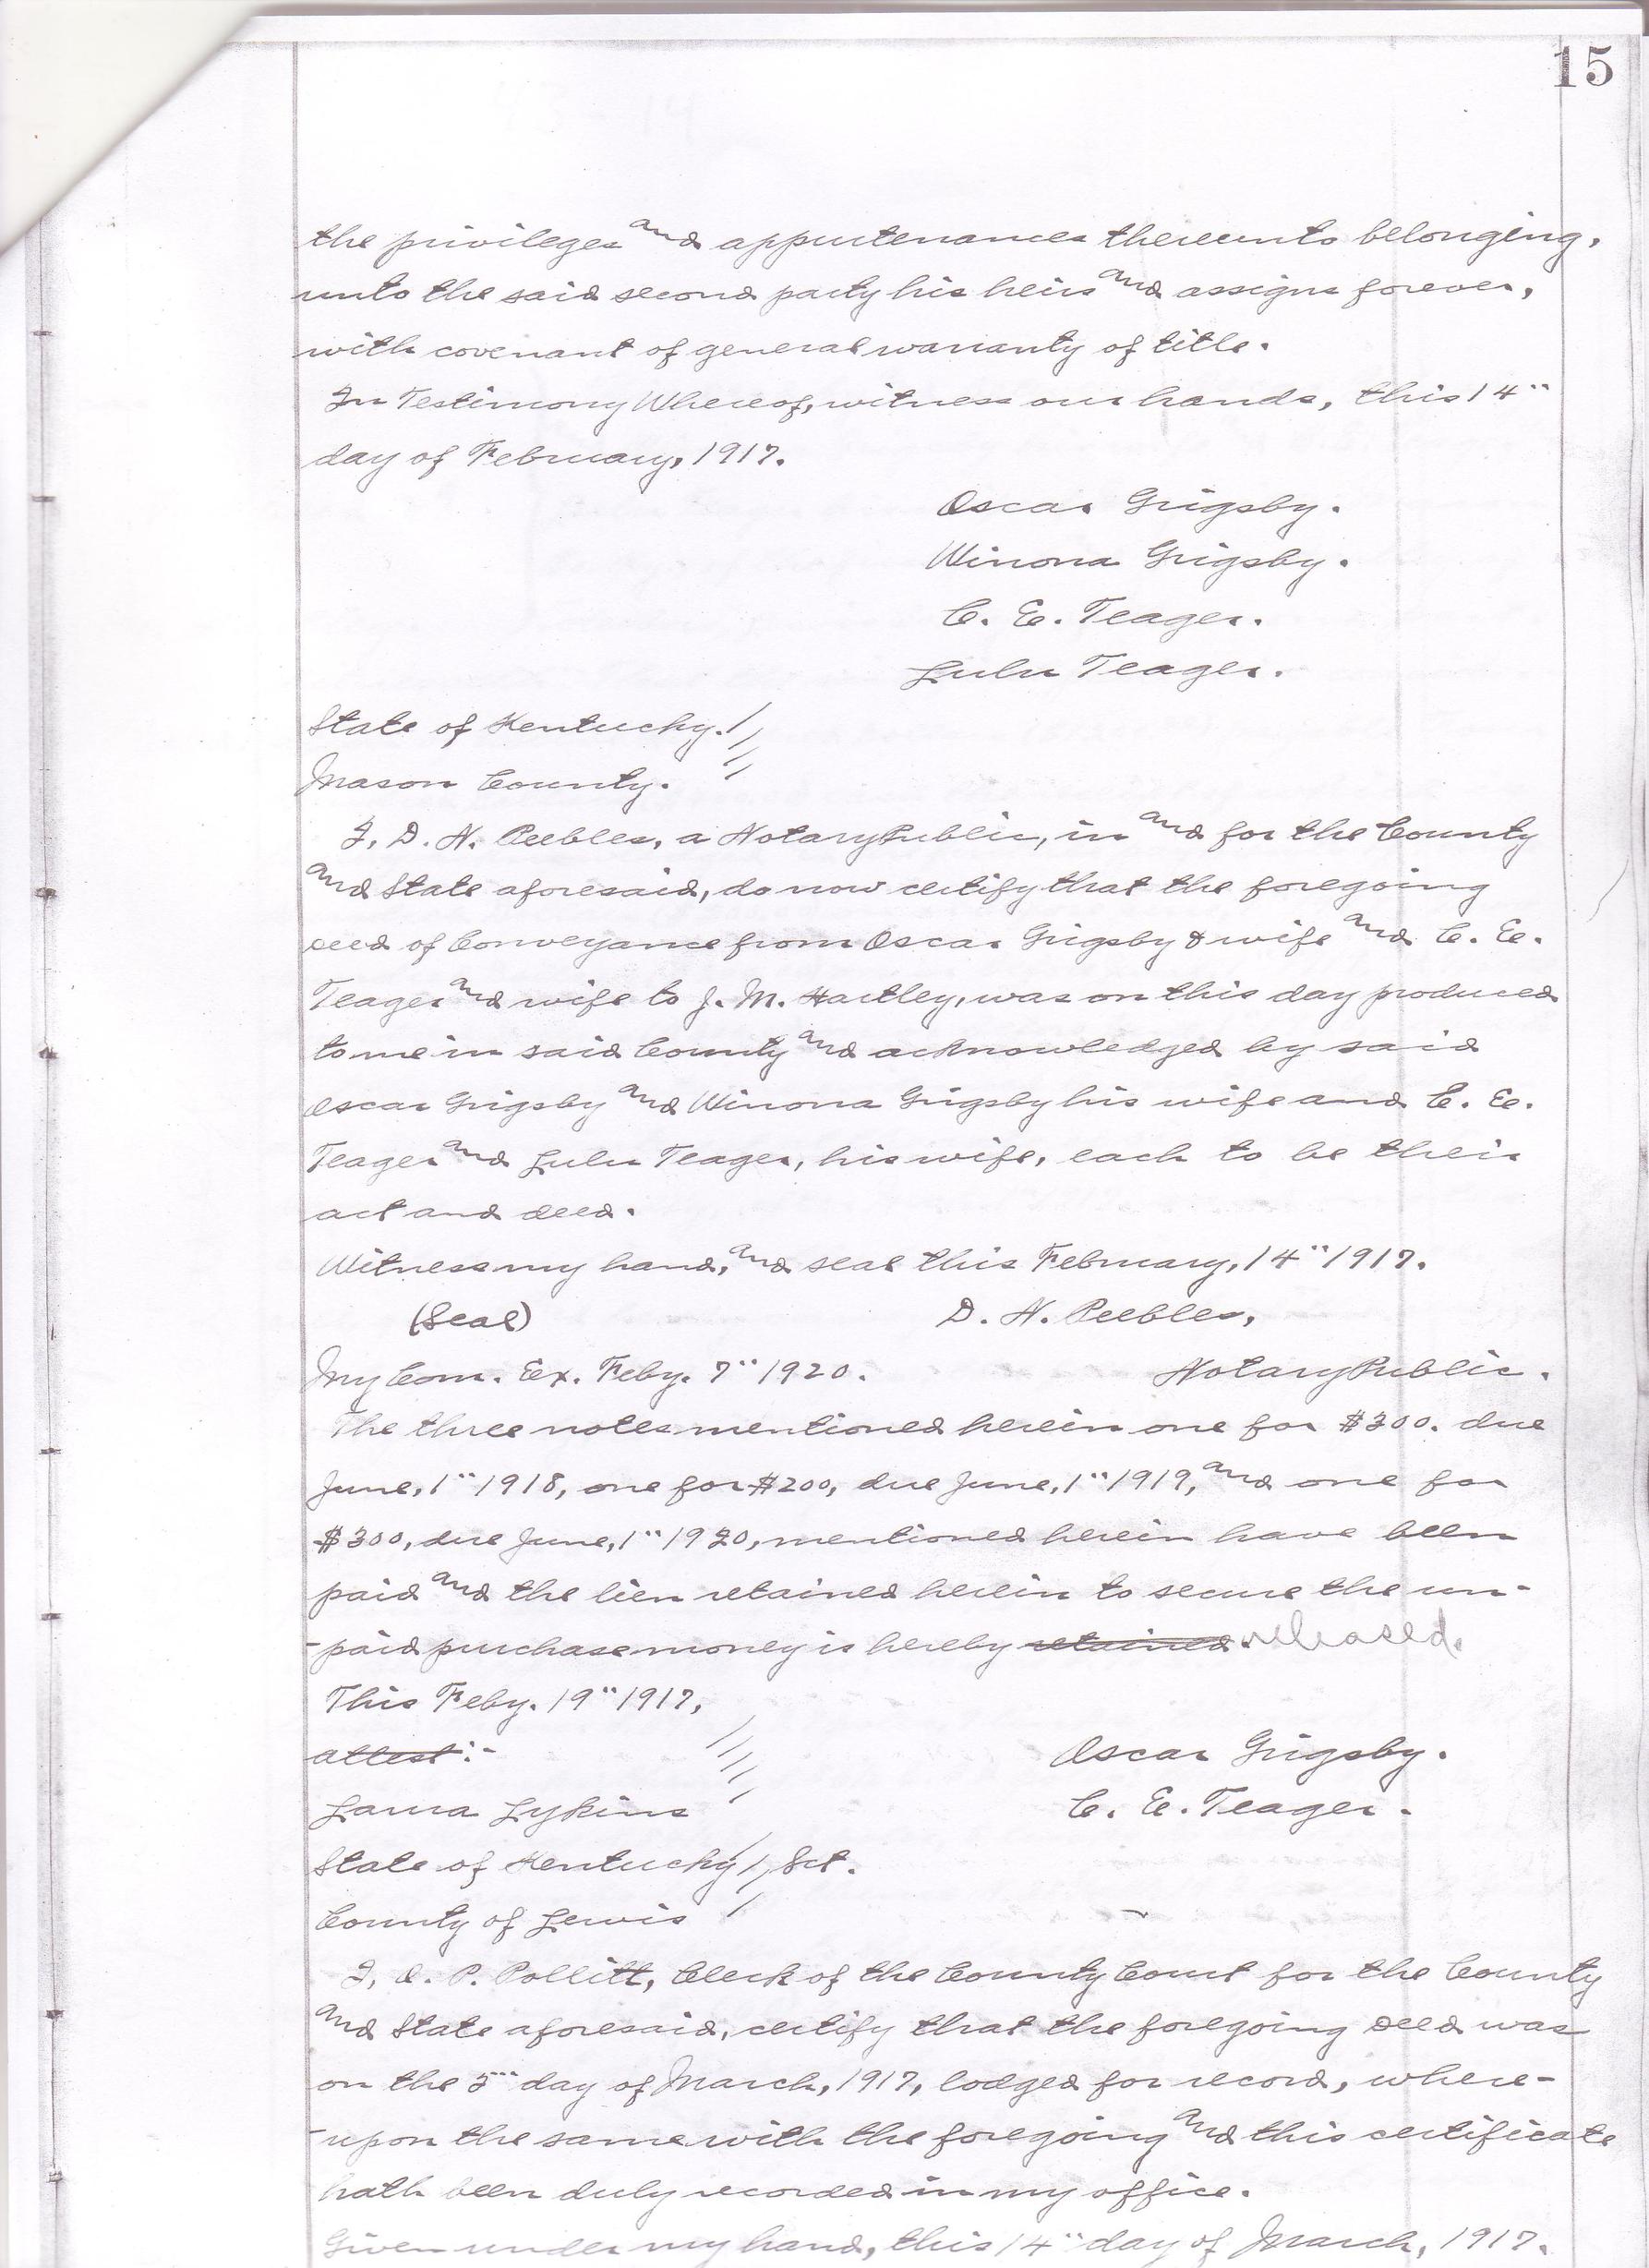 15
the privileges and appurtenances thereunto belonging,
unto the said second party his heirs and assigns forever,
with covenant of general warranty of title.
In Testimony Whereof, witness our hands, this 14"
day of February, 1917.
Oscar Grigsby.
Winona Grigsby.
C. E. Teager.
Lulu Teager.
State of Kentucky.
Mason County.
I, D. N. Peebles, a Notary Public, in and for the County
and State aforesaid, do now certify that the foregoing
deed of Conveyance from Oscar Grigsby & wife and C. E.
Teager and wife to J. M. Hartley, was on this day produced
to me in said County and acknowledged by said
Oscar Grigsby and Winona Grigsby his wife and C. E.
Teager and Lulu Teager, his wife, each to be their
act and deed.
Witness my hand, and seal this February, 14" 1917.
(Seal) D. N. Peebles,
My Com. Ex. Feby. 7" 1920. Notary Public.
The three notes mentioned herein one for $300. due
June, 1" 1918, one for $200, due June, 1" 1919, and one for
$300, due June, 1" 1920, mentioned herein have been
paid and the lien retained herein to secure the un-
-paid purchase money is hereby retained. released.
This Feby. 19" 1917,
attest:- Oscar Grigsby.
Laura Lykins C. E. Teager.
State of Kentucky, Sct.
County of Lewis
I, O. P. Pollitt, Clerk of the County Court for the County
and State aforesaid, certify that the foregoing deed was
on the 5" day of March, 1917, lodged for record, where-
-upon the same with the foregoing and this certificate
hath been duly recorded in my office.
Given under my hand, this 14" day of March, 1917.